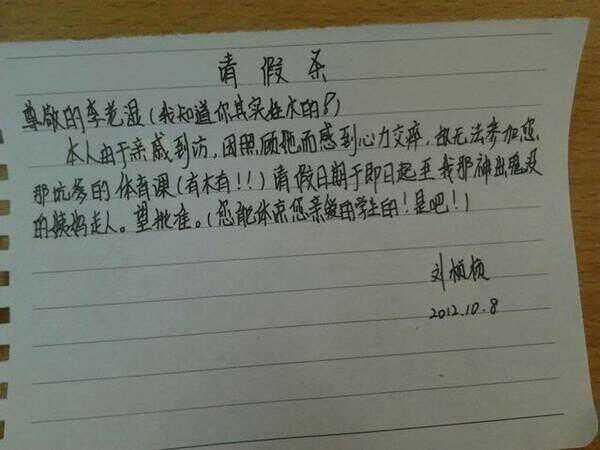 请假条
尊敬的李老湿(我知道你其实姓水的!?)
本人由于亲戚到访,因照顾她而感到心力交瘁,故无法参加您
那坑爹的体育课(有木有!!)请假日期于即日起至我那神出鬼没
的姨妈走人。望批准。(您能体谅您亲爱的学生的!是吧!)
刘桢桢
2012.10.8